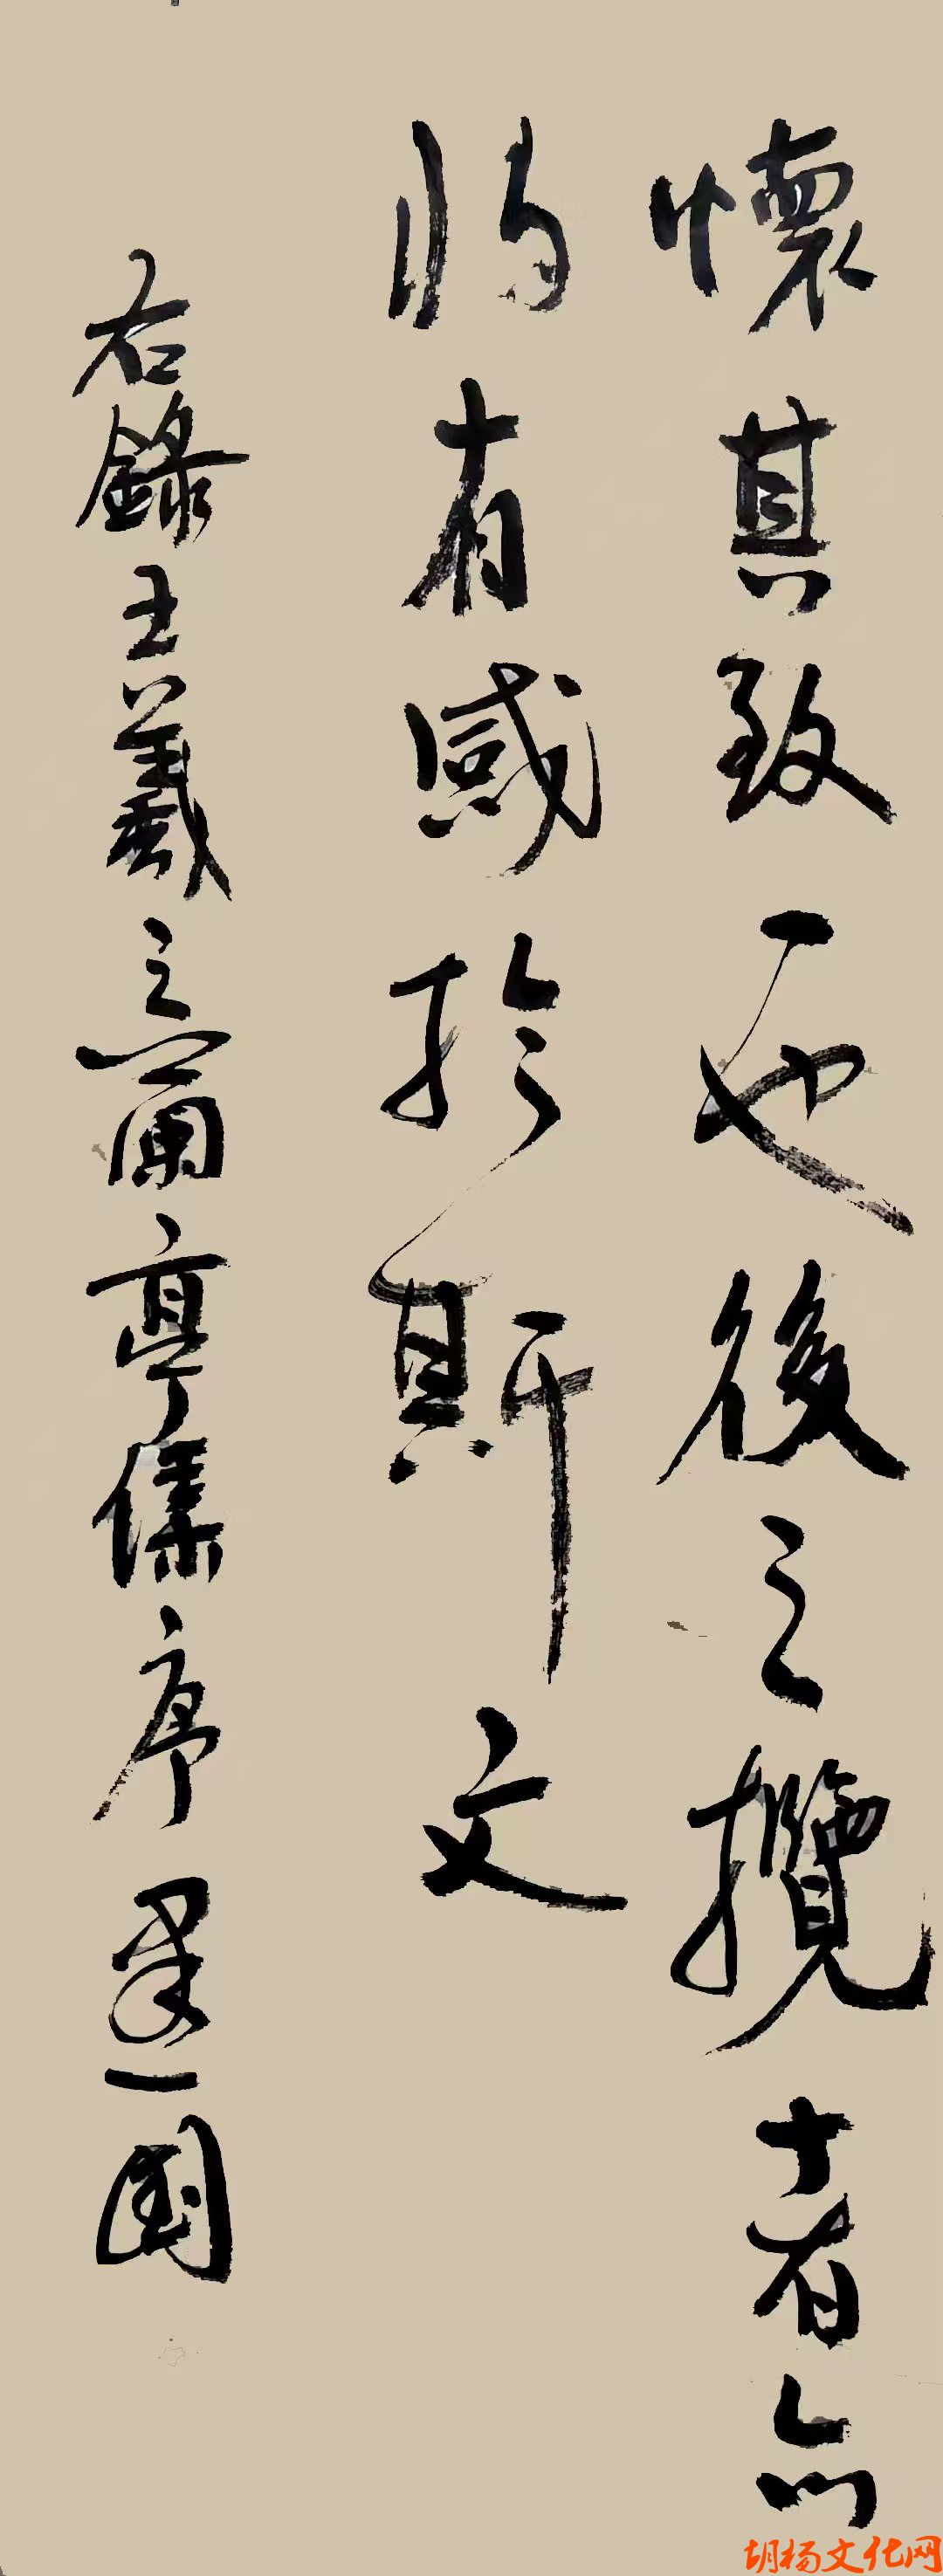 懷其致一也後之攬者亦
將有感於斯文
右錄王羲之蘭亭集序 國
胡杨文化网